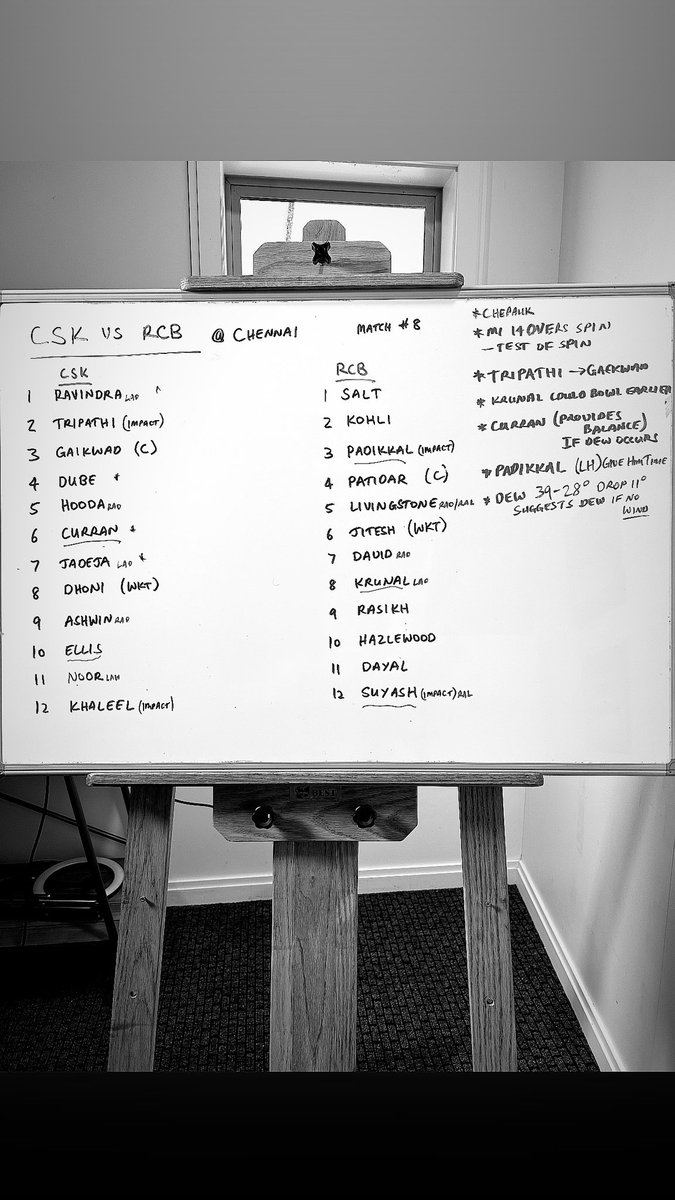 CSK VS RCB @ CHENNAI MATCH #8
CSK
1 RAVINDRA LAO ^
2 TRIPATHI (IMPACT)
3 GAIKWAD (C)
4 DUBE *
5 HOODA RAO
6 CURRAN *
7 JADEJA LAO *
8 DHONI (WKT)
9 ASHWIN RAO
10 ELLIS
11 NOOR LAW
12 KHALEEL (IMPACT)
RCB
1 SALT
2 KOHLI
3 PADIKKAL (IMPACT)
4 PATIDAR (C)
5 LIVINGSTONE RAO/RAL
6 JITESH (WKT)
7 DAVID RAO
8 KRUNAL LAO
9 RASIKH
10 HAZLEWOOD
11 DAYAL
12 SUYASH (IMPACT) RAL
*CHEPAUK
*MI 14 OVERS SPIN
- TEST OF SPIN
*TRIPATHI → GAEKWAD
* KRUNAL COULD BOWL EARLIER
*CURRAN (PROVIDES
BALANCE)
IF DEW OCCURS
*PADIKKAL (LH) GIVE HIM TIME
* DEW 39-28° DROP 11°
SUGGESTS DEW IF NO
WIND
BEST